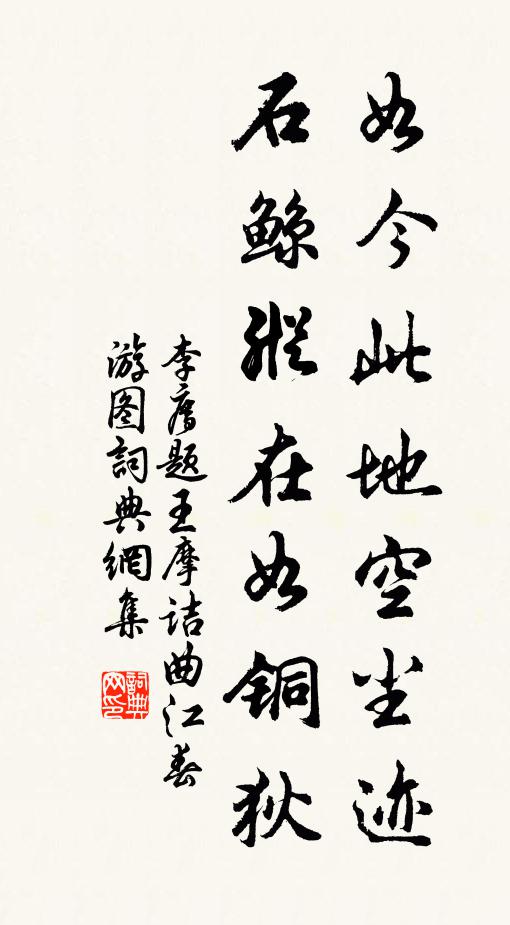 如今此地空尘迹
石鲸纵在如铜狄
李廌题王摩诘曲江春
游图詞典網集
詞典网印